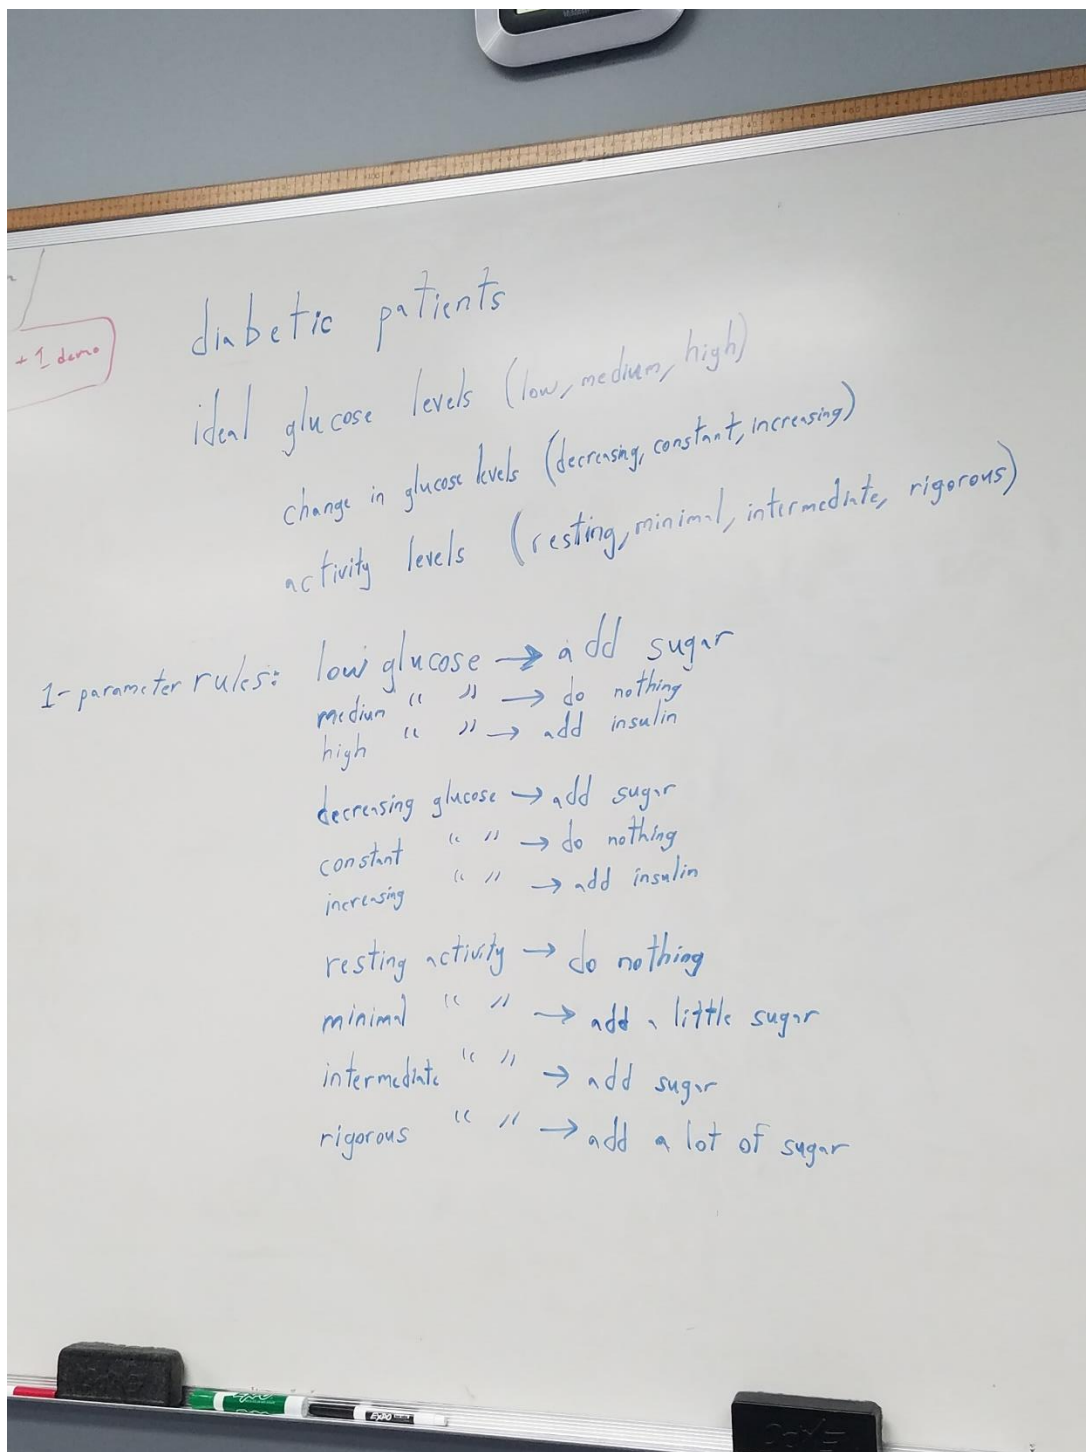 + 1 demo
diabetic patients
ideal glucose levels (low, medium, high)
change in glucose levels (decreasing, constant, increasing)
activity levels (resting, minimal, intermediate, rigorous)
1-parameter rules: low glucose → add sugar
medium " " → do nothing
high " " → add insulin
decreasing glucose → add sugar
constant " " → do nothing
increasing " " → add insulin
resting activity → do nothing
minimal " " → add a little sugar
intermediate " " → add sugar
rigorous " " → add a lot of sugar
EXPO